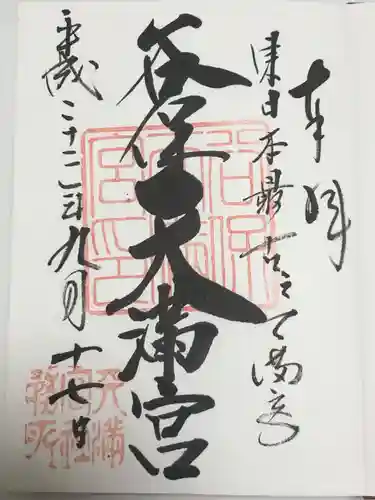 奉拝
東日本最古之天満宮
谷保天満宮
平成二十二年九月十七日
谷保天満宮印
天満宮社務所